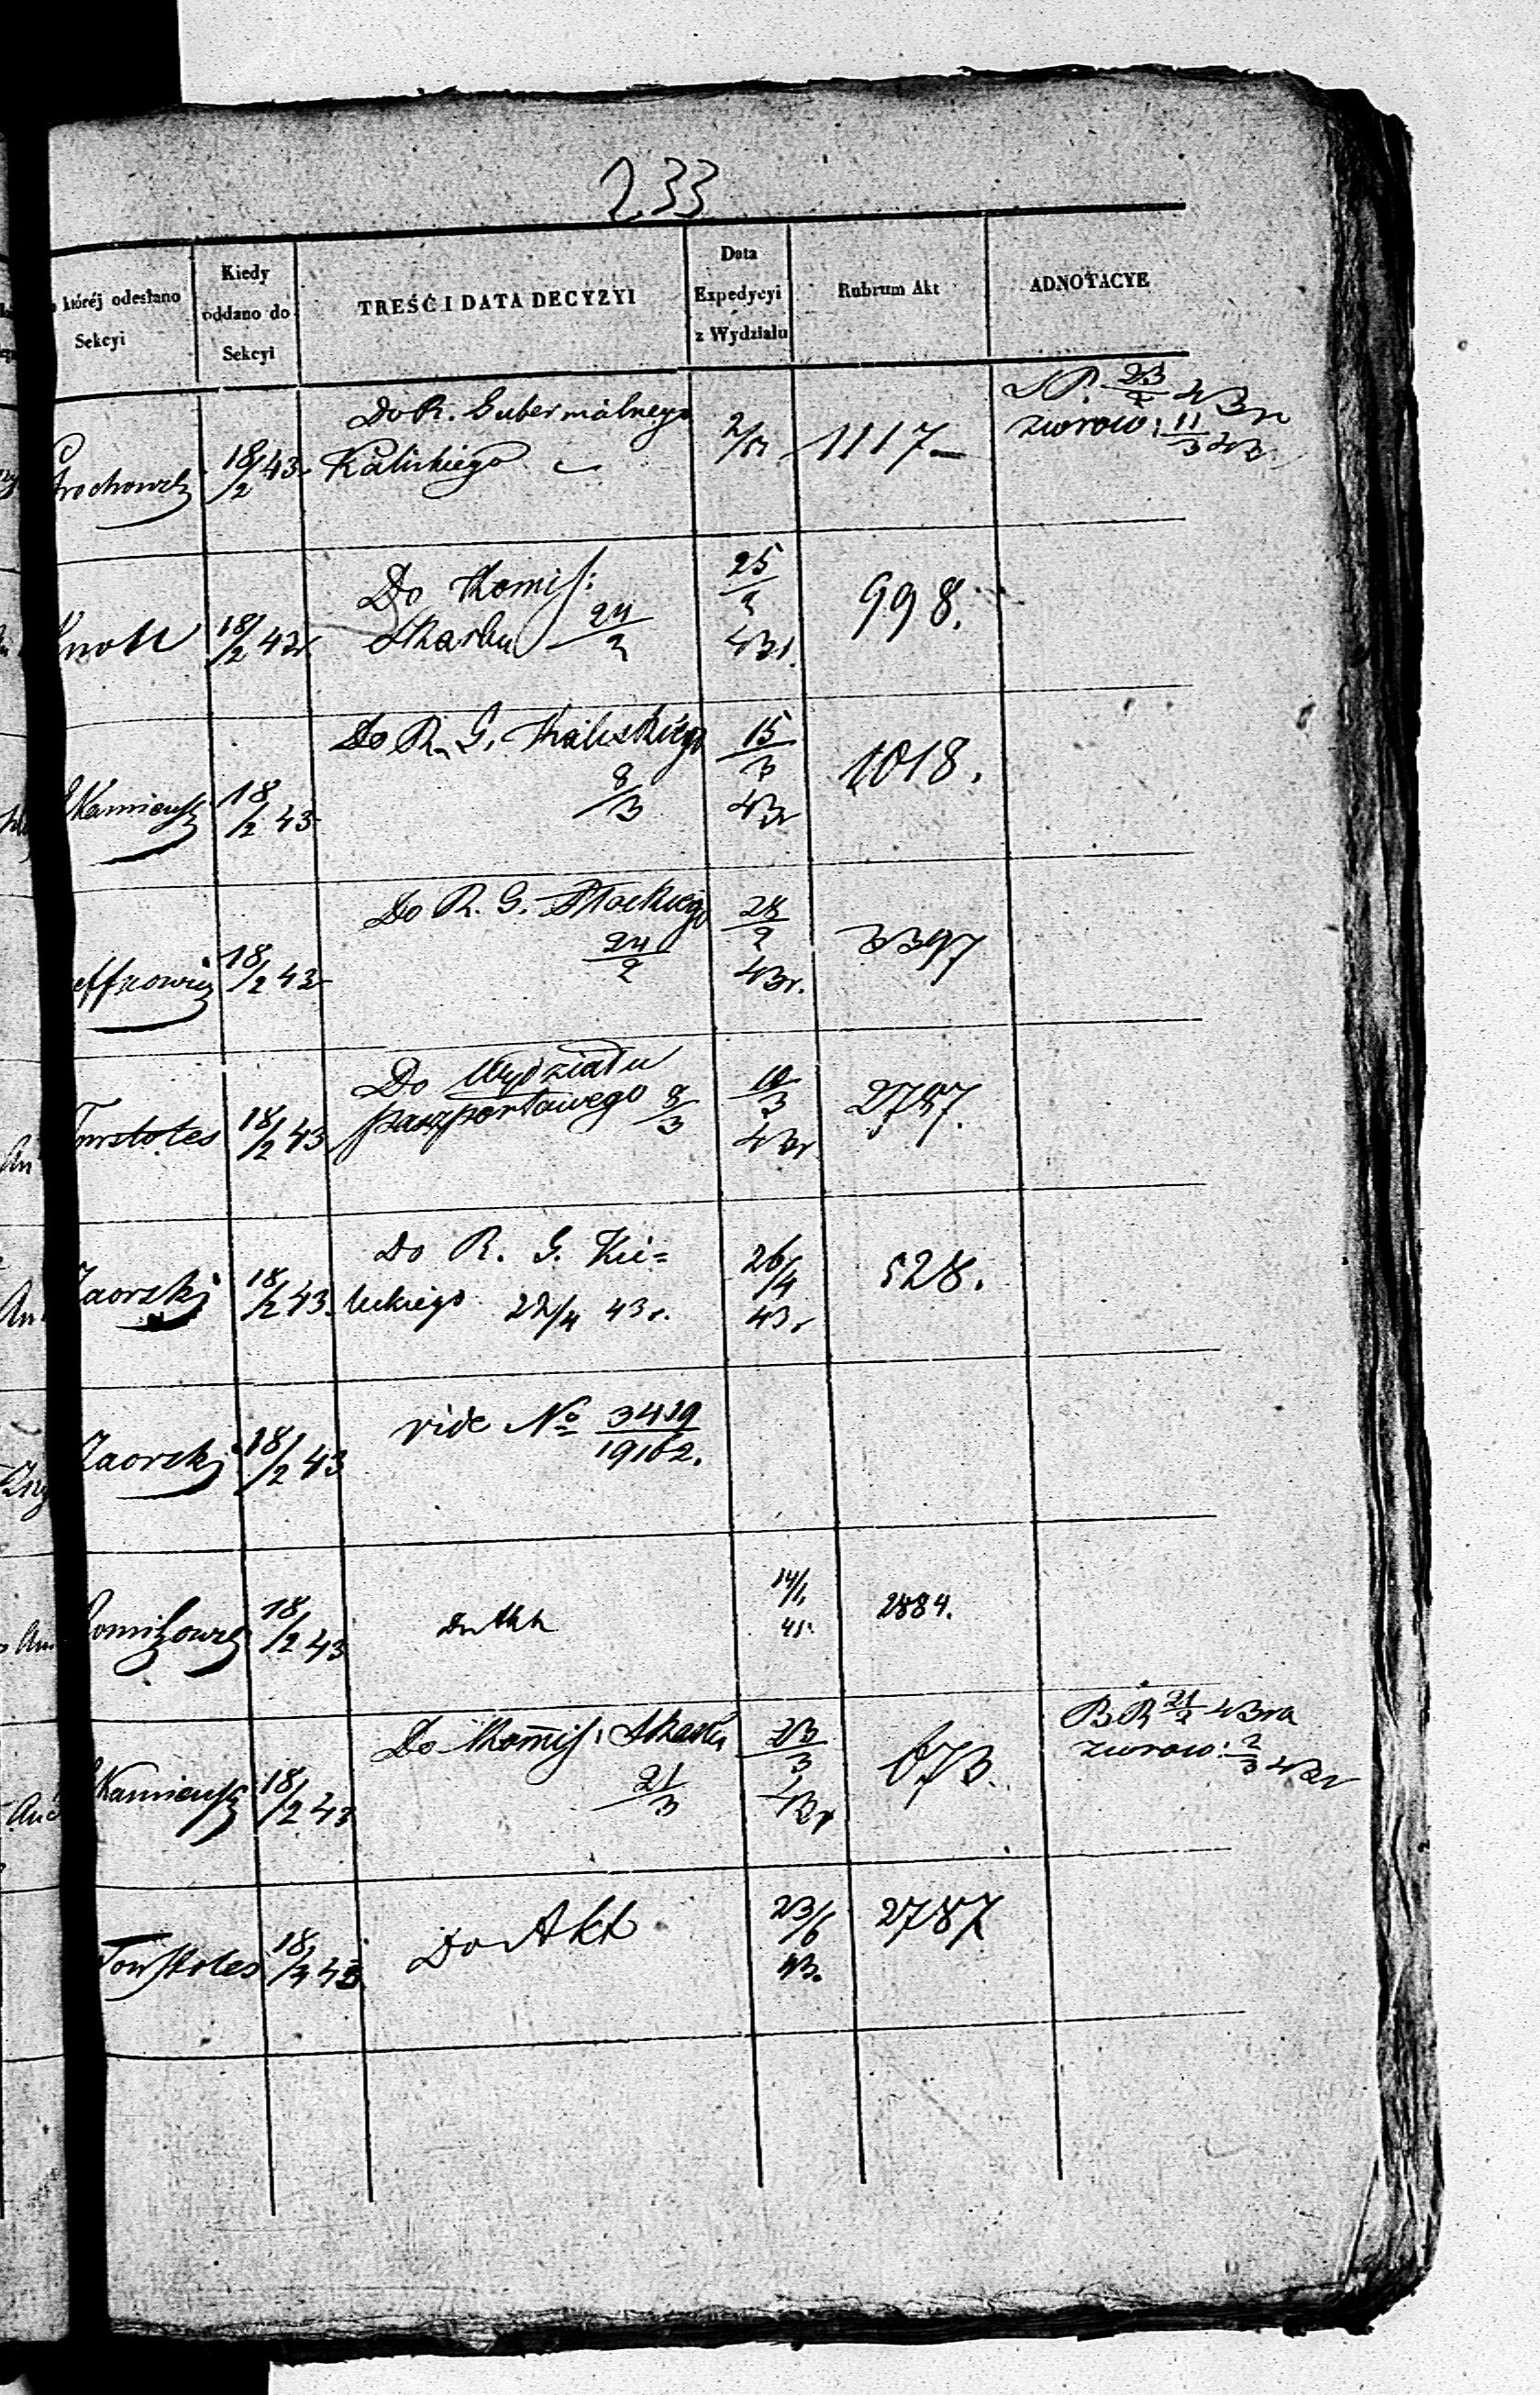 233
któréj odesłano
Sekcyi
Kiedy
oddano do
Sekcyi
TREŚĆ I DATA DECYZYI
Data
Expedycyi
z Wydziału
Rubrum Akt
ADNOTACYE
18/2 43
Do R. Gubernialnego
Kaliskiego
1117
23/2 43r
zwrow: 11/3 43
18/2 43r
Do Komis:
Skarbu 24/2
25/2
43r.
998.
Kamieński
18/2 43
Do R. G. Kaliskiego
8/3
15/3
43r
1018.
18/2 43
Do R. G. Płockiego
24/2
28/2
43r.
3397
18/2 43
Do Wydziału
paszportowego 8/3
10/3
43r
2787.
Zaorski
18/2 43.
Do R. G. Kie=
leckiego 22/4 43r.
26/4
43r
528.
Zaorski
18/2 43
vide No 3419/19162.
18/2 43
do Akt
14/1
2884.
Kamieński
18/2 43
Do Komis: Skarbu
21/3
23/3
43r
673.
21/2 43ra
zwrow: 2/3 43r
18/2 43
Do Akt
23/6
43.
2787